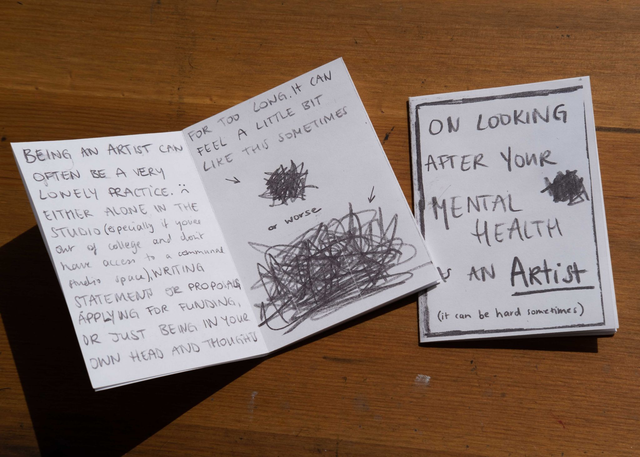 BEING AN ARTIST CAN
OFTEN BE A VERY
LONELY PRACTICE. :(
EITHER ALONE IN THE
STUDIO (especially if youre
out of college and don't
have access to a communal
studio space), WRITING
STATEMENT OR PROPOSALS
APPLYING FOR FUNDING,
OR JUST BEING IN YOUR
OWN HEAD AND THOUGHTS
FOR TOO LONG. IT CAN
FEEL A LITTLE BIT
LIKE THIS SOMETIMES
or worse
ON LOOKING
AFTER YOUR
MENTAL
HEALTH
AS AN Artist
(it can be hard sometimes)